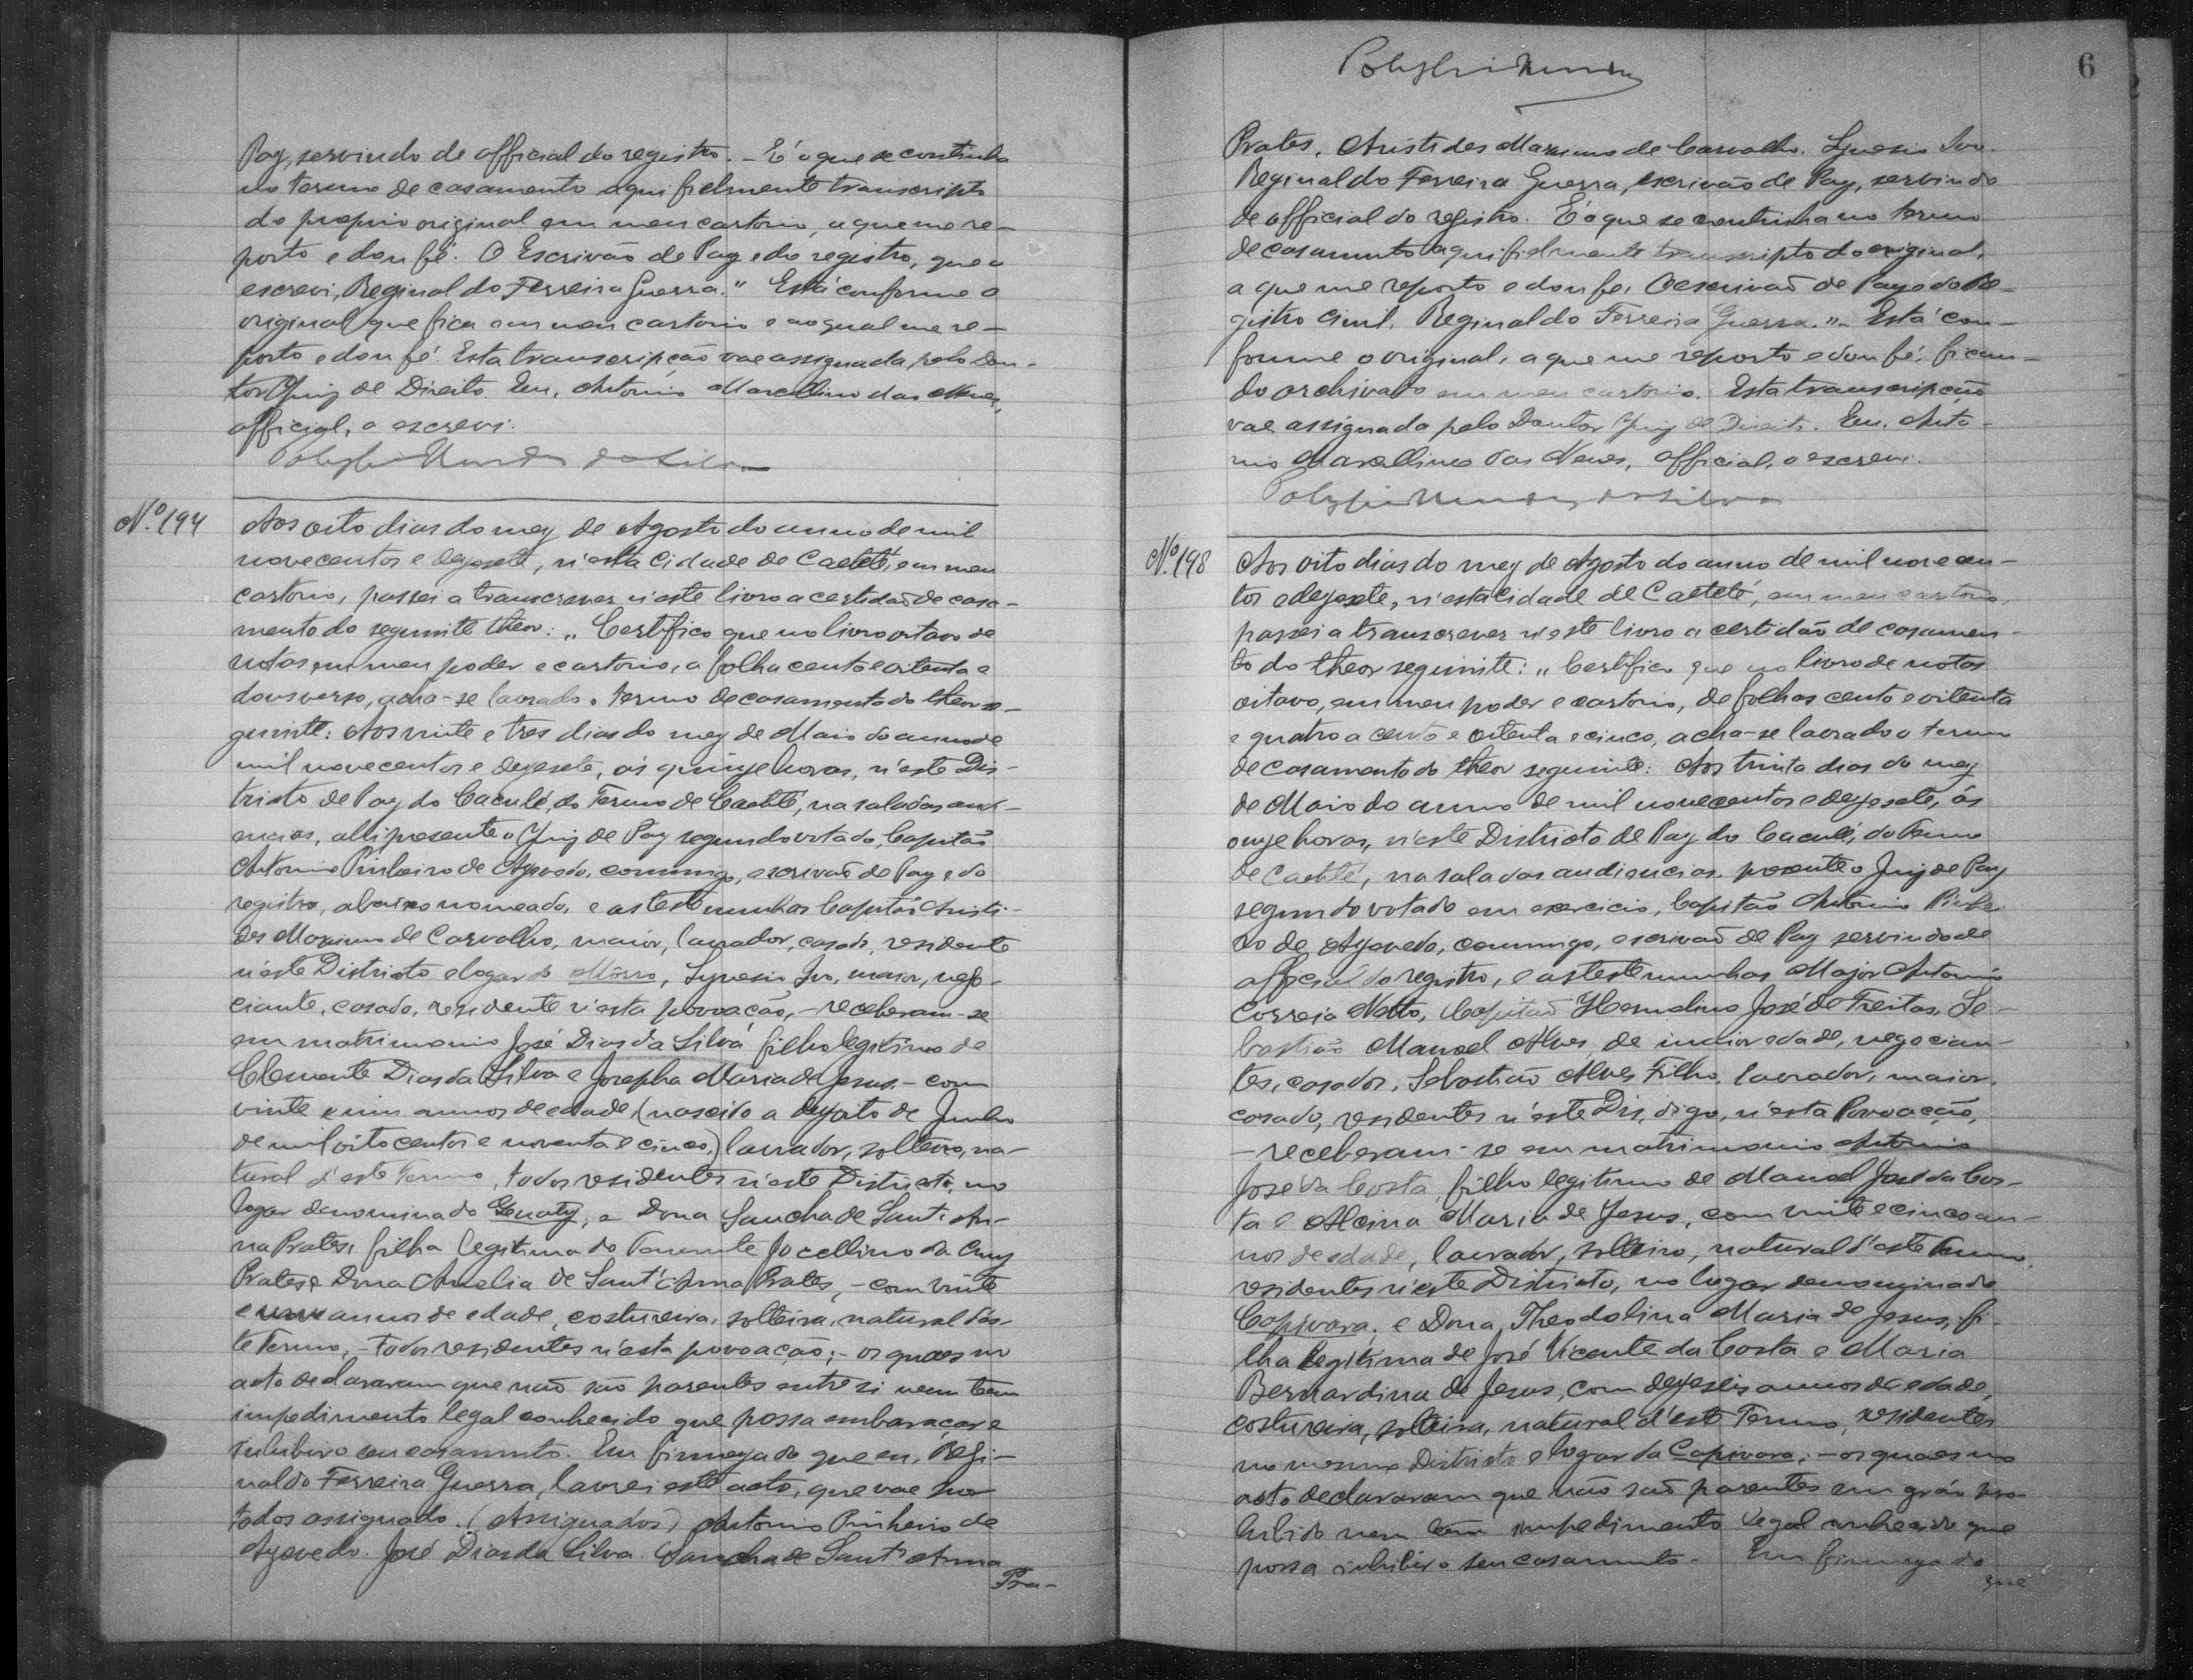 Paz, servindo de official do registro. – E' o que se continha
no termo de casamento aqui fielmente transcripto
do proprio original em meu cartorio, a que me re–
porto e dou fé. O Escrivão de Paz e do registro, que o
escrevi, Reginaldo Ferreira Guerra." Está conforme o
original que fica em meu cartorio e ao qual me re–
porto e dou fé. Esta transcripção vae assignada pelo Dou–
tor Juiz de Direito. Eu, Antonio Marcellino das Neves,
official, o escrevi.
da Silva
Nº. 194
Aos oito dias do mez de Agosto do anno de mil
novecentos e dezesete, n'esta Cidade de Caeteté, em meu
cartorio, passei a transcrever n'este livro a certidão de casa–
mento do seguinte theor: „ Certifico que no livro oitavo de
notas em meu poder e cartorio, a folha cento e oitenta e
dous verso, acha-se lavrado o termo de casamento do theor se–
guinte: Aos vinte e tres dias do mez de Maio do anno de
mil novecentos e dezesete, ás quinze horas, n'este Dis–
tricto de Paz do Caculé, do Termo de Caeteté, na sala das audi–
encias, ahi presente o Juiz de Paz segundo votado, Capitão
Antonio Pinheiro de Azevedo, commigo, escrivão de Paz e do
registro, abaixo nomeado, e as testemunhas Capitão Aristi–
des Maximo de Carvalho, maior, lavrador, casado, residente
n'este Districto e logar do Môrro, Synesio Ivo, maior, nego–
ciante, casado, residente n'esta povoação, – receberam-se
em matrimonio José Dias da Silva filho legitimo de
Clemente Dias da Silva e Josepha Maria de Jesus – com
vinte e um annos de edade, (nascido a dezoito de Junho
de mil oitocentos e noventa e cinco,) lavrador, solteiro, na–
tural d'este Termo, todos residentes n'este Districto, no
logar denominado e Dona Sancha de Sant'An–
na Prates, filha legitima do Tenente Jocellino da Cruz
Prates e Dona Amelia de Sant'Anna Prates, – com vinte
e annos de edade, costureira, solteira, natural d'es–
te Termo, – todos residentes n'esta povoação; – os quaes no
acto declararam que não são parentes entre si nem têm
impedimento legal conhecido que possa embaraçar e
inhibir o seu casamento. Em firmeza do que eu, Regi–
naldo Ferreira Guerra, lavrei este acto, que vae por
todos assignado. (Assignados) Antonio Pinheiro de
Azevedo. José Dias da Silva. Sancha de Sant'Anna
Pra–
6
Prates. Aristides Maximo de Carvalho. Synesio Ivo.
Reginaldo Ferreira Guerra, escrivão de Paz, servindo
de official do registro. E' o que se continha no termo
de casamento aqui fielmente transcripto do original,
a que me reporto e dou fé. O escrivão de Paz e do Re–
gistro Civil, Reginaldo Ferreira Guerra." – Está con–
forme o original, a que me reporto e dou fé, fican–
do archivado em meu cartorio. Esta transcripção
vae assignada pelo Doutor Juiz de Direito. Eu, Anto–
nio Marcellino das Neves, official, o escrevi.
da Silva
Nº. 198
Aos oito dias do mez de Agosto do anno de mil novecen–
tos e dezesete, n'esta cidade de Caeteté, em meu cartorio,
passei a transcrever n'este livro a certidão de casamen–
to do theor seguinte: „ Certifico que no livro de notas
oitavo, em meu poder e cartorio, de folhas cento e oitenta
e quatro a cento e oitenta e cinco, acha-se lavrado o termo
de casamento do theor seguinte: Aos trinta dias do mez
de Maio do anno de mil novecentos e dezesete, ás
onze horas, n'este Districto de Paz do Caculé, do Termo
de Caeteté, na sala das audiencias, presente o Juiz de Paz
segundo votado em exercicio, Capitão Antonio Pinhei–
ro de Azevedo, commigo, escrivão de Paz servindo de
official do registro, e as testemunhas Major Antonio
Correia Netto, Capitão José de Freitas, Se–
bastião Manoel Alves, de maior edade, negocian–
tes, casados, Sebastião Alves Filho, lavrador, maior,
casado, residentes n'este Dis, digo, n'esta Povoação,
– receberam-se em matrimonio Antonio
José da Costa, filho legitimo de Manoel José da Cos–
ta e Alcina Maria de Jesus, com vinte e cinco an–
nos de edade, lavrador, solteiro, natural d'este Termo,
residentes n'este Districto, no logar denominado
Capivara, e Dona Theodolina Maria de Jesus, fi–
lha legitima de José Vicente da Costa e Maria
Bernardina de Jesus, com dezeseis annos de edade,
costureira, solteira, natural d'este Termo, residentes
no mesmo Districto e logar da Capivara; – os quaes no
acto declararam que não são parentes em gráo pro–
hibido nem têm impedimento legal conhecido que
possa inhibir o seu casamento. – Em firmeza do
que